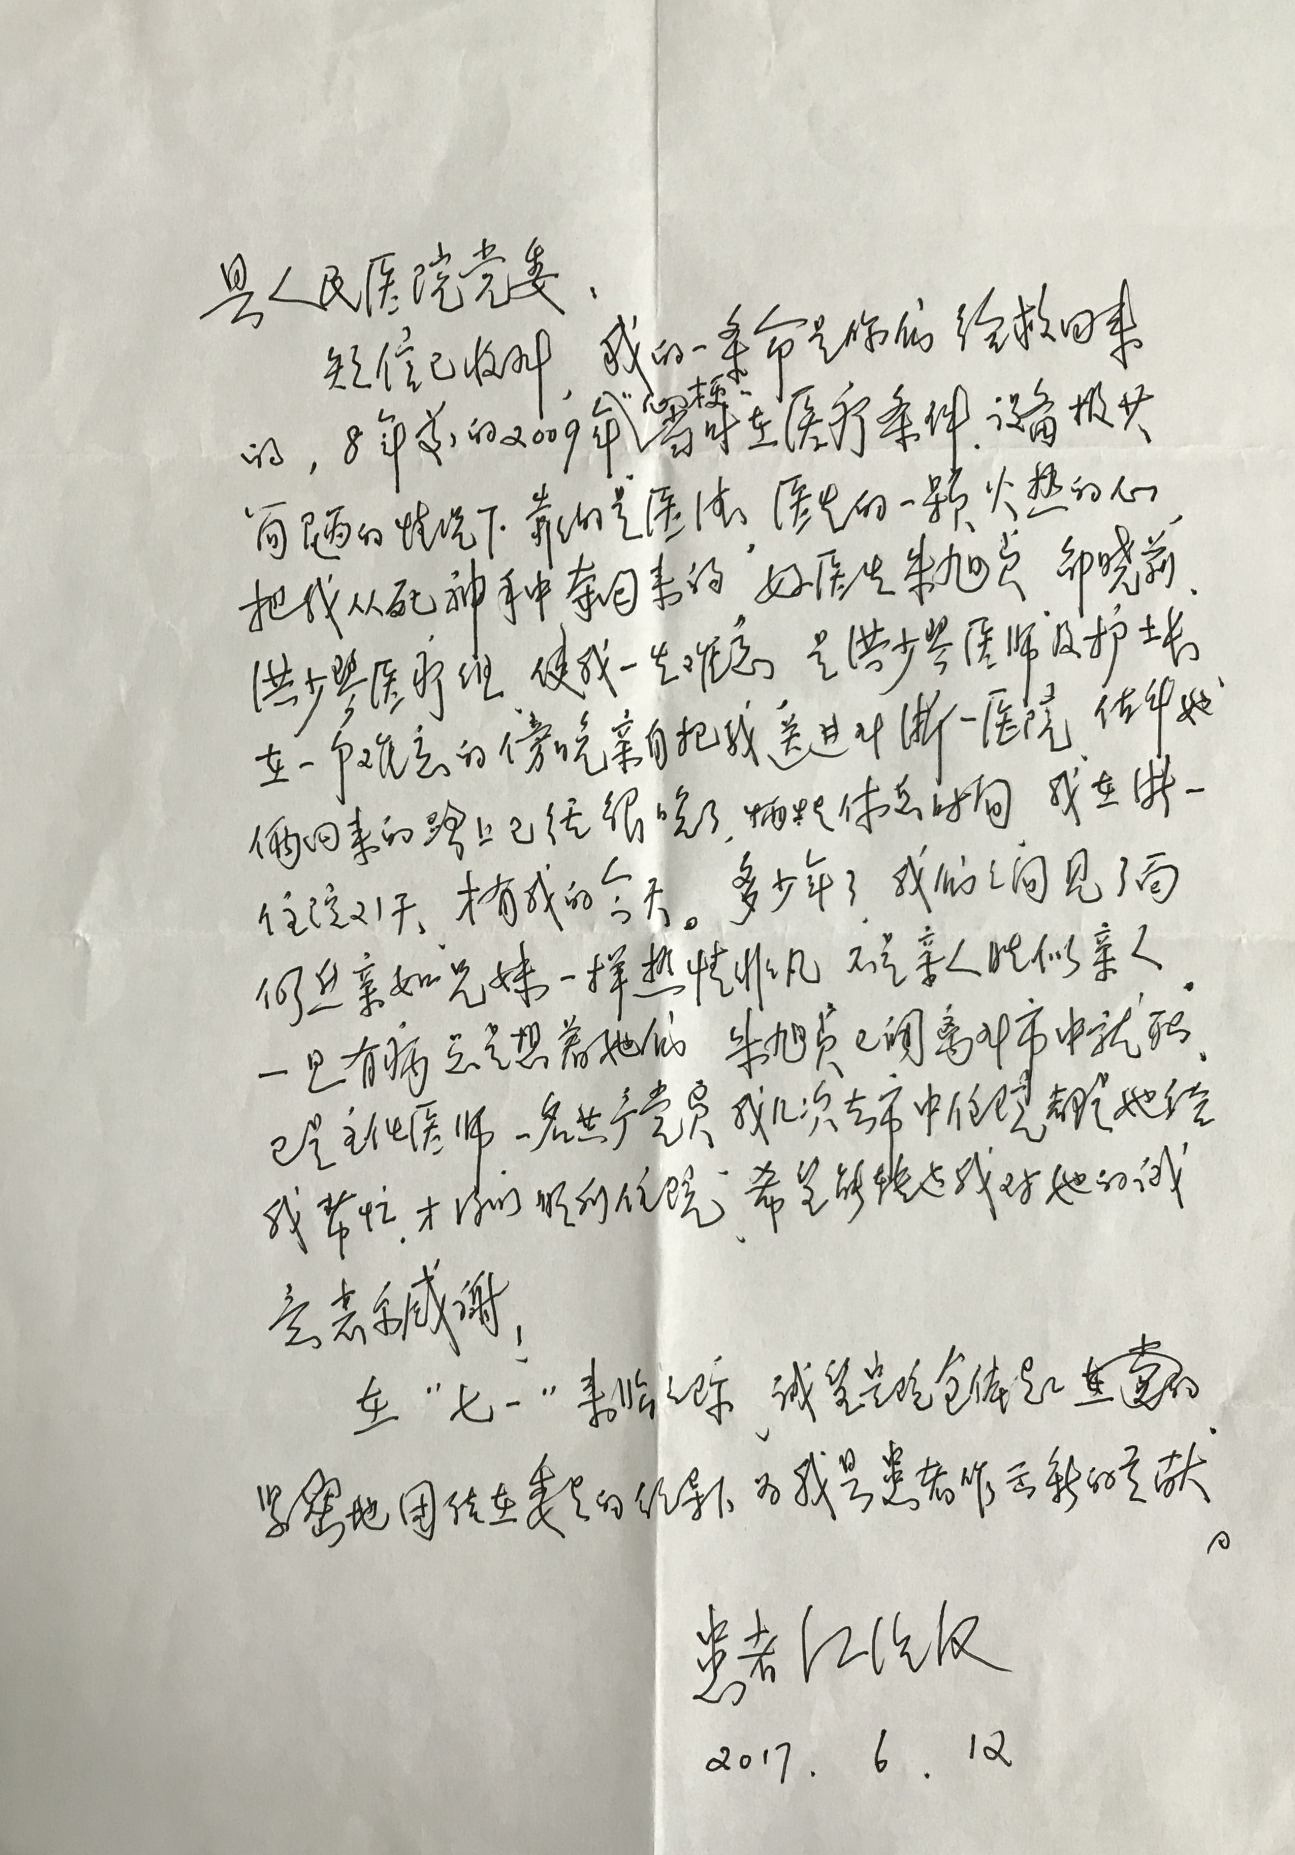 县人民医院党委、
短信已收到，我的一条命是你们给救回来
的，8年前的2009年心梗，当时在医疗条件、设备极其
简陋的情况下，靠的是医德，医生的一颗火热的心，
把我从死神手中夺回来的，好医生朱旭贞、邵晓莉、
洪少琴医疗组，使我一生难忘，是洪少琴医师及护士长
在一个难忘的傍晚亲自把我送进到浙一医院，估计她
俩回来的路上已经很晚了，牺牲休息时间，我在浙一
住院21天，才有我的今天。多少年了，我们之间见了面
何止亲如兄妹一样热情非凡，不是亲人胜似亲人，
一旦有病总是想着她们，朱旭贞已调离到市中就职，
已是主任医师，一名共产党员，我几次去市中住院都是她给
我帮忙，才得以顺利住院，希望能转达我对她的诚
意表示感谢！
在“七一”来临之际，诚望贵院全体员工在党的
紧密地团结在委员的领导下为我县患者作出新的贡献
。
患者 江
2017. 6. 12